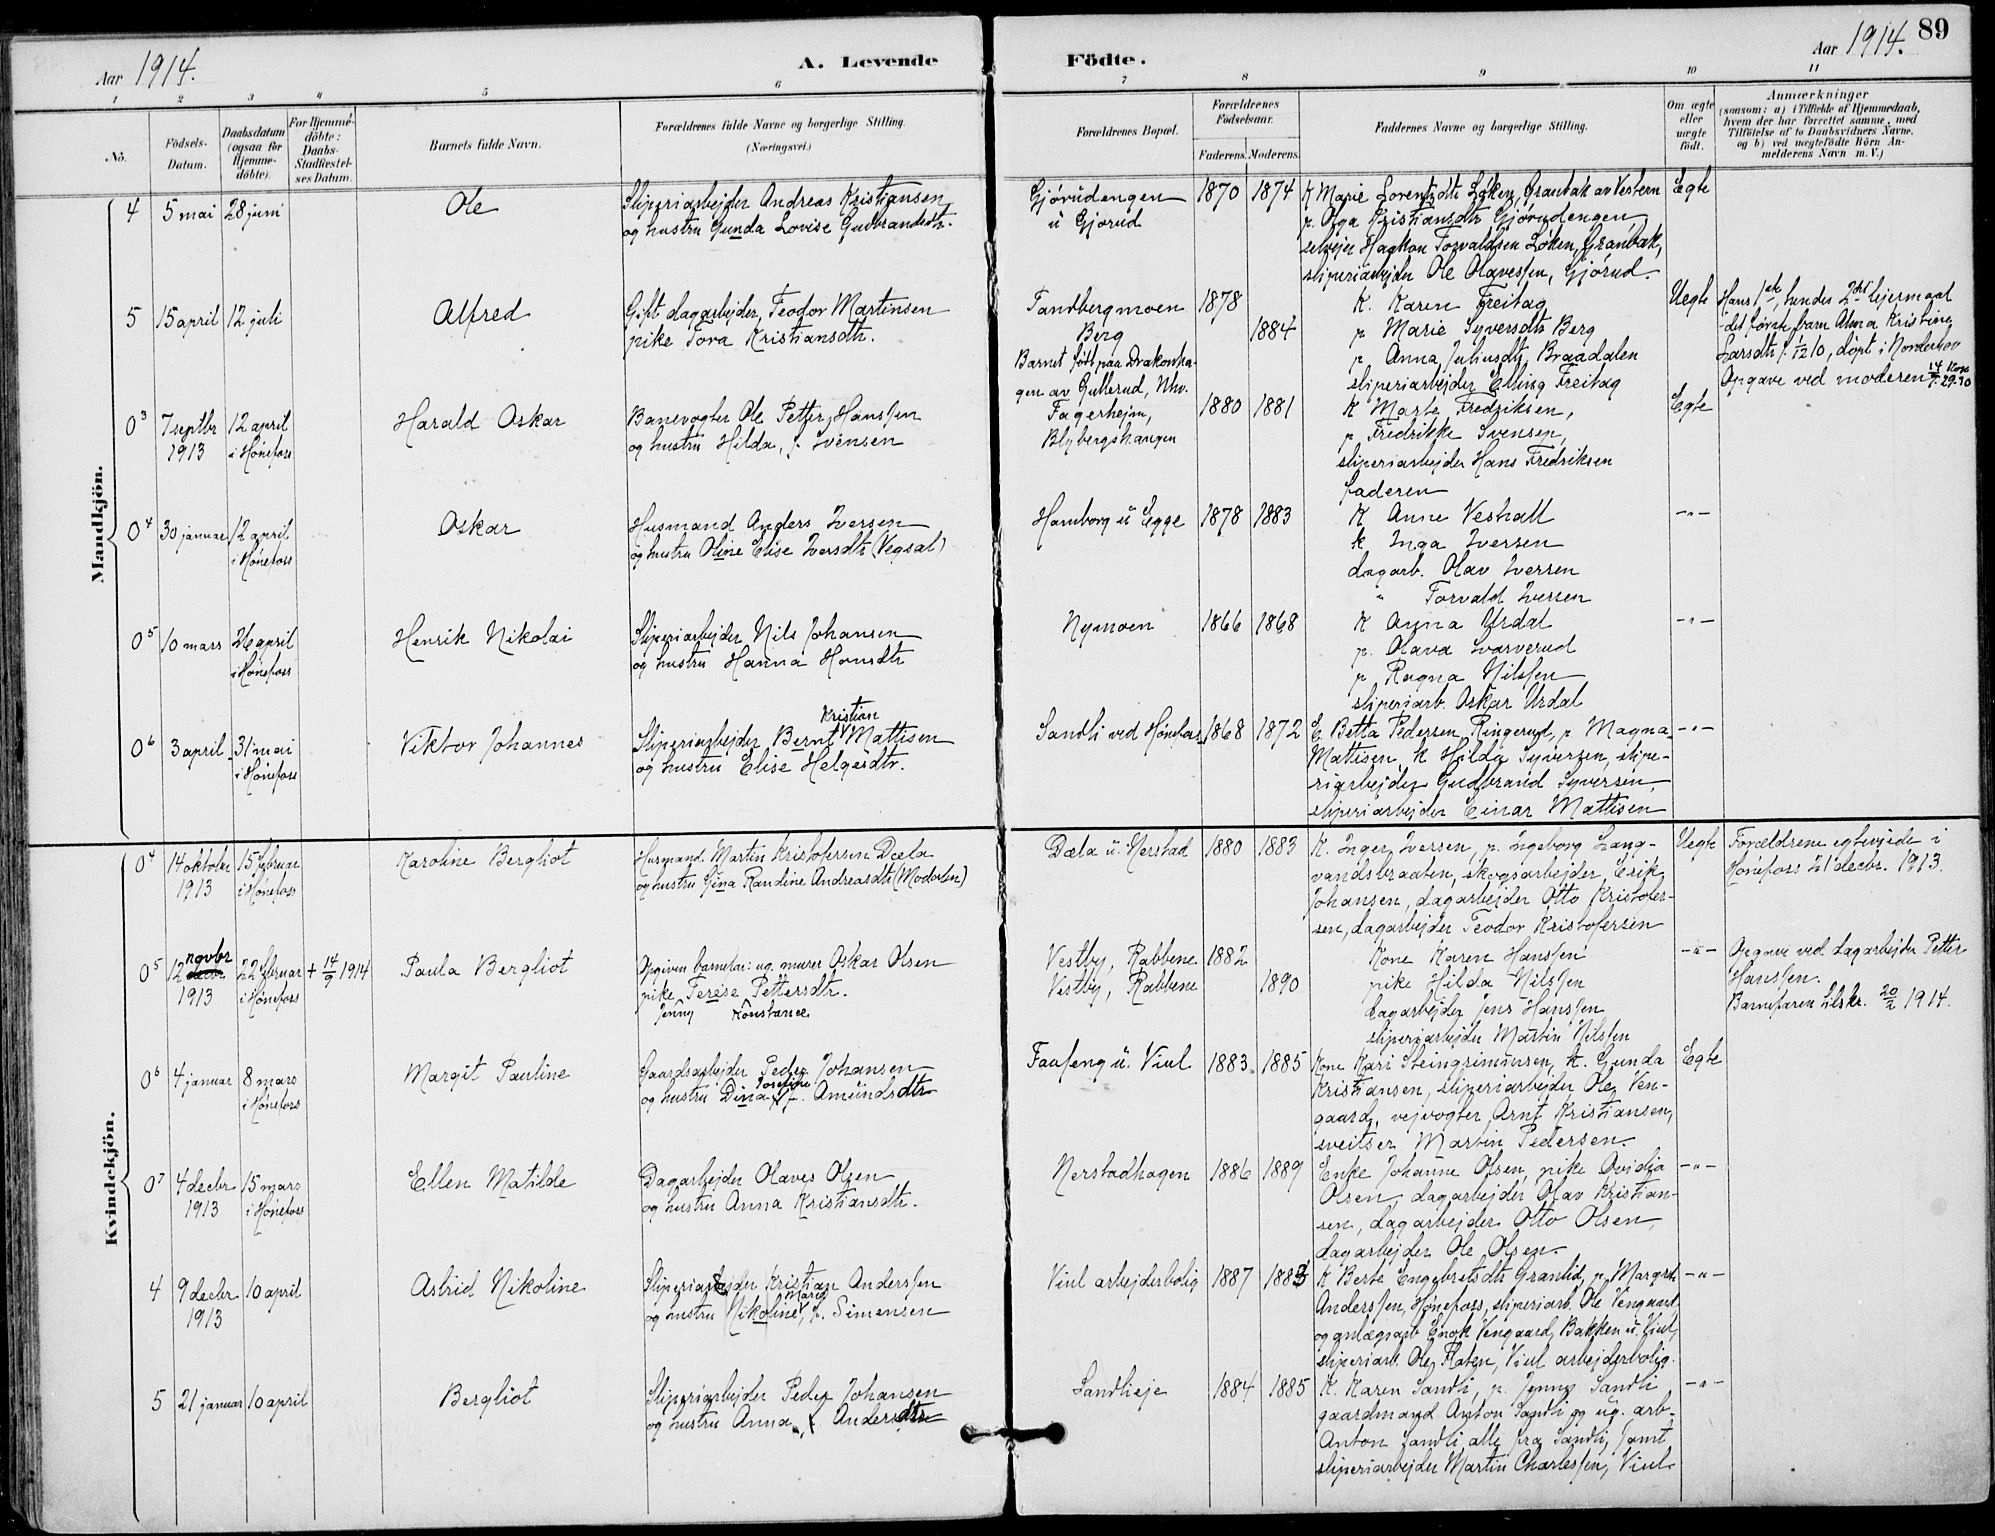 89
Aar 1914.
A. Levende
Födte.
Aar 1914.
1 2 3 4 5 6 7 8 9 10 11
No.
Födsels-
Datum.
Daabsdatum
(ogsaa for
Hjemme-
döbte).
For Hjemme-
döbte:
Daabs-
Stadfæstel-
ses Datum.
Barnets fulde Navn.
Forældrenes fulde Navne og borgerlige Stilling.
(Næringsvei.)
Forældrenes Bopæl.
Forældrenes
Födselsaar.
Faderens. Moderens.
Faddernes Navne og borgerlige Stilling.
Om ægte
eller
uægte
födt.
Anmærkninger
(saasom: a) i Tilfælde af Hjemmedaab,
hvem der har forrettet samme, med
Tilföielse af to Daabsvidners Navne,
og b) ved uægtefödte Börn An-
melderens Navn m. V.)
Mandkjön.
4 5 mai 28 juni Ole
Sliperiarbejder Andreas Kristiansen
og hustru Gunda Lovise Gudbrandsdtr.
Gjørudengen
u Gjorud
1870 1874
K Marie Lorentsdtr Løken, Granbak av Vestern
p. Olga Kristiansdtr Gjörudengen,
selvejer Haakon Torvaldsen Løken, Granbak,
sliperiarbejder Ole Olavessen, Gjörud.
Egte
5 15 april 12 juli Alfred
Gift dagarbejder, Teodor Martinsen
pike Tora Kristiansdtr.
Tandbergmoen
Berg
Barnet født paa Drakonha-
gen av Gullerud, Nhv.
1878
1884
K. Karen Freitag
p Marie Syversdtr Berg
p. Anna Juliusdtr, Braadalen
sliperiarbejder Elling Freitag
Uegte
Hans 1ste, hendes 2det lejermaal
det første barn Alma Kristine
Larsdtr f. 1/12 10, døpt i Norderhov
Opgave ved moderen
0 3 7 septbr 1913 12 april i Hønefoss Harald Oskar
Banevogter Ole Petter Hanssen
og hustru Hilda, f. Svensen
Fagerhejm,
Blybergshaugen
1880 1881
K Marte Fredriksen,
p Fredrikke Svensen,
sliperiarbejder Hans Fredriksen
faderen
Egte
0 4 30 januar 12 april i Hønefoss Oskar
Husmand Anders Iversen
og hustru Oline Elise Iversdtr (Vegsal)
Hamborg u Egge 1878 1883
K Anne Veshall
k Inga Iversen
dagarb. Olav Iversen
" Torvald Iversen
-"-
0 5 10 mars 26 april i Hønefoss Henrik Nikolai
Sliperiarbejder Nils Johansen
og hustru Hanna Hansdtr
Nymoen 1866 1868
K Anna Urdal
p. Olava Svarverud
p Ragna Nilssen
sliperiarb. Oskar Urdal
-"-
0 6 3 april 31 mai i Hønefoss Viktor Johannes
Kristian
Sliperiarbejder Bernt Mattisen
og hustru Elise Helgesdtr.
Sandli ved Hønefoss 1868 1872
E. Betta Pedersen Ringerud, p Magna
Mattisen, k Hilda Syversen, slipe-
riarbejder Gudbrand Syversen,
sliperiarbejder Einar Mattisen
-"-
Kvindekjön.
0 4 14 oktober 1913 15 februar i Hønefoss Karoline Bergliot
Husmand Martin Kristofersen Dæla
og hustru Gina Randine Andreasdtr (Modalen)
Dæla u. Nerstad 1880 1883
K. Inger Iversen, p. Ingeborg Lang-
vandsbraaten, skogsarbejder Erik
Johansen, dagarbejder Otto Kristofer-
sen, dagarbejder Teodor Kristofersen
Uegte
Forældrene egteviede i
Hønefoss 21 decbr. 1913.
0 5 12 novbr 1913 22 februar i Hønefoss + 14/9 1914 Paula Bergliot
Opgiven barnefar: ug. murer Oskar Olsen
pike Terese Pettersdtr.
Jenny Konstance
Vestby, Rabbene 1882
Vestby, Rabbene 1890
Kone Karen Hanssen
pike Hilda Nilssen
dagarbejder Jens Hanssen
sliperiarbejder Martin Nilssen
-"-
Opgave ved dagarbejder Petter
Hanssen.
Barnefaren tilskr. 20/2 1914.
0 6 4 januar 8 mars i Hønefoss Margit Pauline
Gaardsarbejder Peder Johansen
Josefine
og hustru Dina f. Amundsdtr
u. Viul 1883 1885
Kone Kari Steingrimsen, k. Gunda
Kristiansen, sliperiarbejder Ole Ven-
gaard, vejvogter Arnt Kristiansen,
sveitser Martin Pedersen.
Egte
0 7 4 decbr 1913 15 mars i Hønefoss Ellen Matilde
Dagarbejder Olaves Olsen
og hustru Anna Kristiansdtr.
Nerstadhagen 1886 1889
Enke Johanne Olsen, pike Ovidia
Olsen, dagarbejder Olav Kristian-
sen, dagarbejder Otto Olsen,
dagarbejder Ole Olsen.
-"-
4 9 decbr 1913 10 april Astrid Nikoline
Sliperiarbejder Kristian Anderssen
Marie
og hustru Nikoline, f. Simensen
Viul arbejderbolig 1887 1883
K Berte Engebretsdtr Granlid, p. Margrete
Anderssen, Hønefoss, sliperiarb. Ole Vengaard
og anlægsarb Enok Vengaard, Bakken u. Viul,
sliperiarb. Ole Flaten, Viul arbejderbolig.
-"-
5 21 januar 10 april Bergliot
Sliperiarbejder Peder Johansen
og hustru Anna, f. Andersdtr
Sandlieje 1884 1885
K. Karen Sandli, p. Jenny Sandli
gaardmand Anton Sandli og ug. arb.
Anton Sandli, alle fra Sandli, samt
sliperiarbejder Martin Charlessen, Viul.
-"-